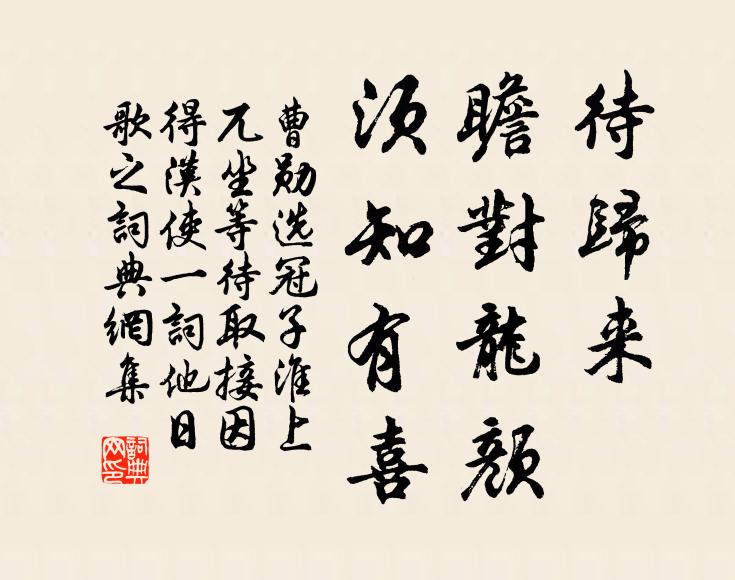 待歸来
瞻對龍顔
须知有喜
曹勋选冠子淮上
兀坐等待取接因
得漢使一詞他日
歌之詞典網集
詞典网印